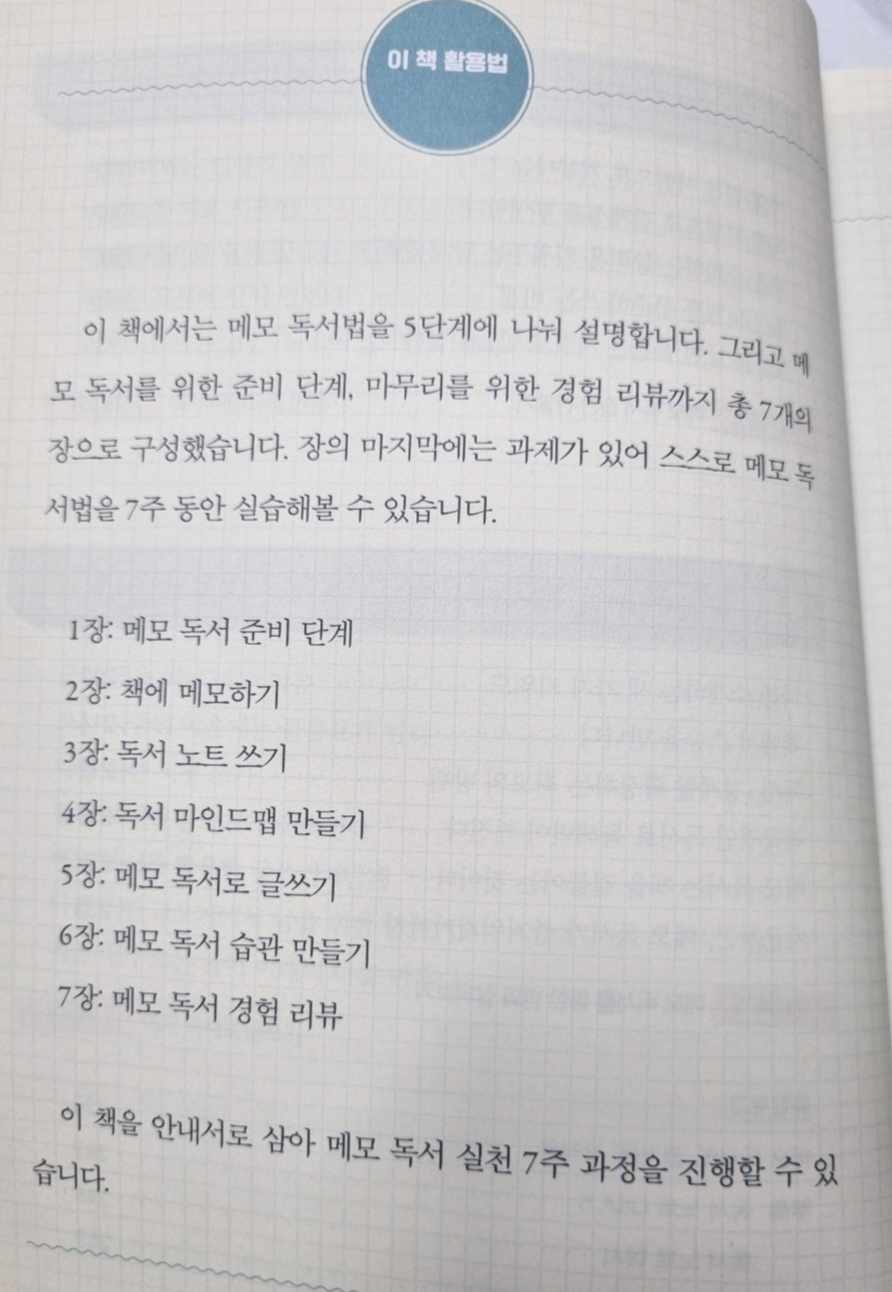 이 책 활용법
이 책에서는 메모 독서법을 5단계에 나눠 설명합니다. 그리고 메
모 독서를 위한 준비 단계, 마무리를 위한 경험 리뷰까지 총 7개의
장으로 구성했습니다. 장의 마지막에는 과제가 있어 스스로 메모 독
서법을 7주 동안 실습해볼 수 있습니다.
1장: 메모 독서 준비 단계
2장: 책에 메모하기
3장: 독서 노트 쓰기
4장: 독서 마인드맵 만들기
5장: 메모 독서로 글쓰기
6장: 메모 독서 습관 만들기
7장: 메모 독서 경험 리뷰
이 책을 안내서로 삼아 메모 독서 실천 7주 과정을 진행할 수 있
습니다.